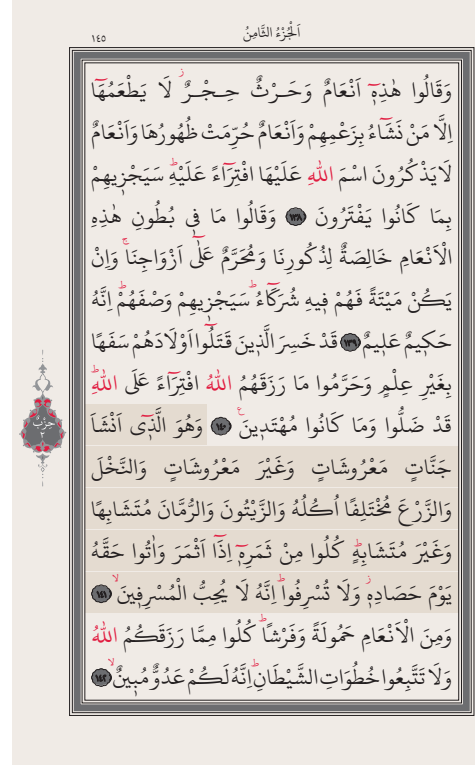 اَلْجُزْءُ الثَّامِنُ
١٤٥
وَقَالُوا هٰذِهٖٓ اَنْعَامٌ وَحَرْثٌ حِجْرٌۘ لَا يَطْعَمُهَٓا
اِلَّا مَنْ نَشَٓاءُ بِزَعْمِهِمْ وَاَنْعَامٌ حُرِّمَتْ ظُهُورُهَا وَاَنْعَامٌ
لَا يَذْكُرُونَ اسْمَ اللّٰهِ عَلَيْهَا افْتِرَٓاءً عَلَيْهِۜ سَيَجْزٖيهِمْ
بِمَا كَانُوا يَفْتَرُونَ ﴿١٣٨﴾ وَقَالُوا مَا فٖي بُطُونِ هٰذِهِ
الْاَنْعَامِ خَالِصَةٌ لِذُكُورِنَا وَمُحَرَّمٌ عَلٰٓى اَزْوَاجِنَاۚ وَاِنْ
يَكُنْ مَيْتَةً فَهُمْ فٖيهِ شُرَكَٓاءُۜ سَيَجْزٖيهِمْ وَصْفَهُمْۜ اِنَّهُ
حَكٖيمٌ عَلٖيمٌ ﴿١٣٩﴾ قَدْ خَسِرَ الَّذٖينَ قَتَلُٓوا اَوْلَادَهُمْ سَفَهًا
بِغَيْرِ عِلْمٍ وَحَرَّمُوا مَا رَزَقَهُمُ اللّٰهُ افْتِرَٓاءً عَلَى اللّٰهِۜ
قَدْ ضَلُّوا وَمَا كَانُوا مُهْتَدٖينَࣖ ﴿١٤٠﴾ وَهُوَ الَّذٖٓي اَنْشَاَ
جَنَّاتٍ مَعْرُوشَاتٍ وَغَيْرَ مَعْرُوشَاتٍ وَالنَّخْلَ
وَالزَّرْعَ مُخْتَلِفًا اُكُلُهُ وَالزَّيْتُونَ وَالرُّمَّانَ مُتَشَابِهًا
وَغَيْرَ مُتَشَابِهٍۜ كُلُوا مِنْ ثَمَرِهٖٓ اِذَٓا اَثْمَرَ وَاٰتُوا حَقَّهُ
يَوْمَ حَصَادِهٖۘ وَلَا تُسْرِفُواۜ اِنَّهُ لَا يُحِبُّ الْمُسْرِفٖينَۙ ﴿١٤١﴾
وَمِنَ الْاَنْعَامِ حَمُولَةً وَفَرْشًاۜ كُلُوا مِمَّا رَزَقَكُمُ اللّٰهُ
وَلَا تَتَّبِعُوا خُطُوَاتِ الشَّيْطَانِۜ اِنَّهُ لَكُمْ عَدُوٌّ مُبٖينٌۙ ﴿١٤٢﴾
حِزْبْ